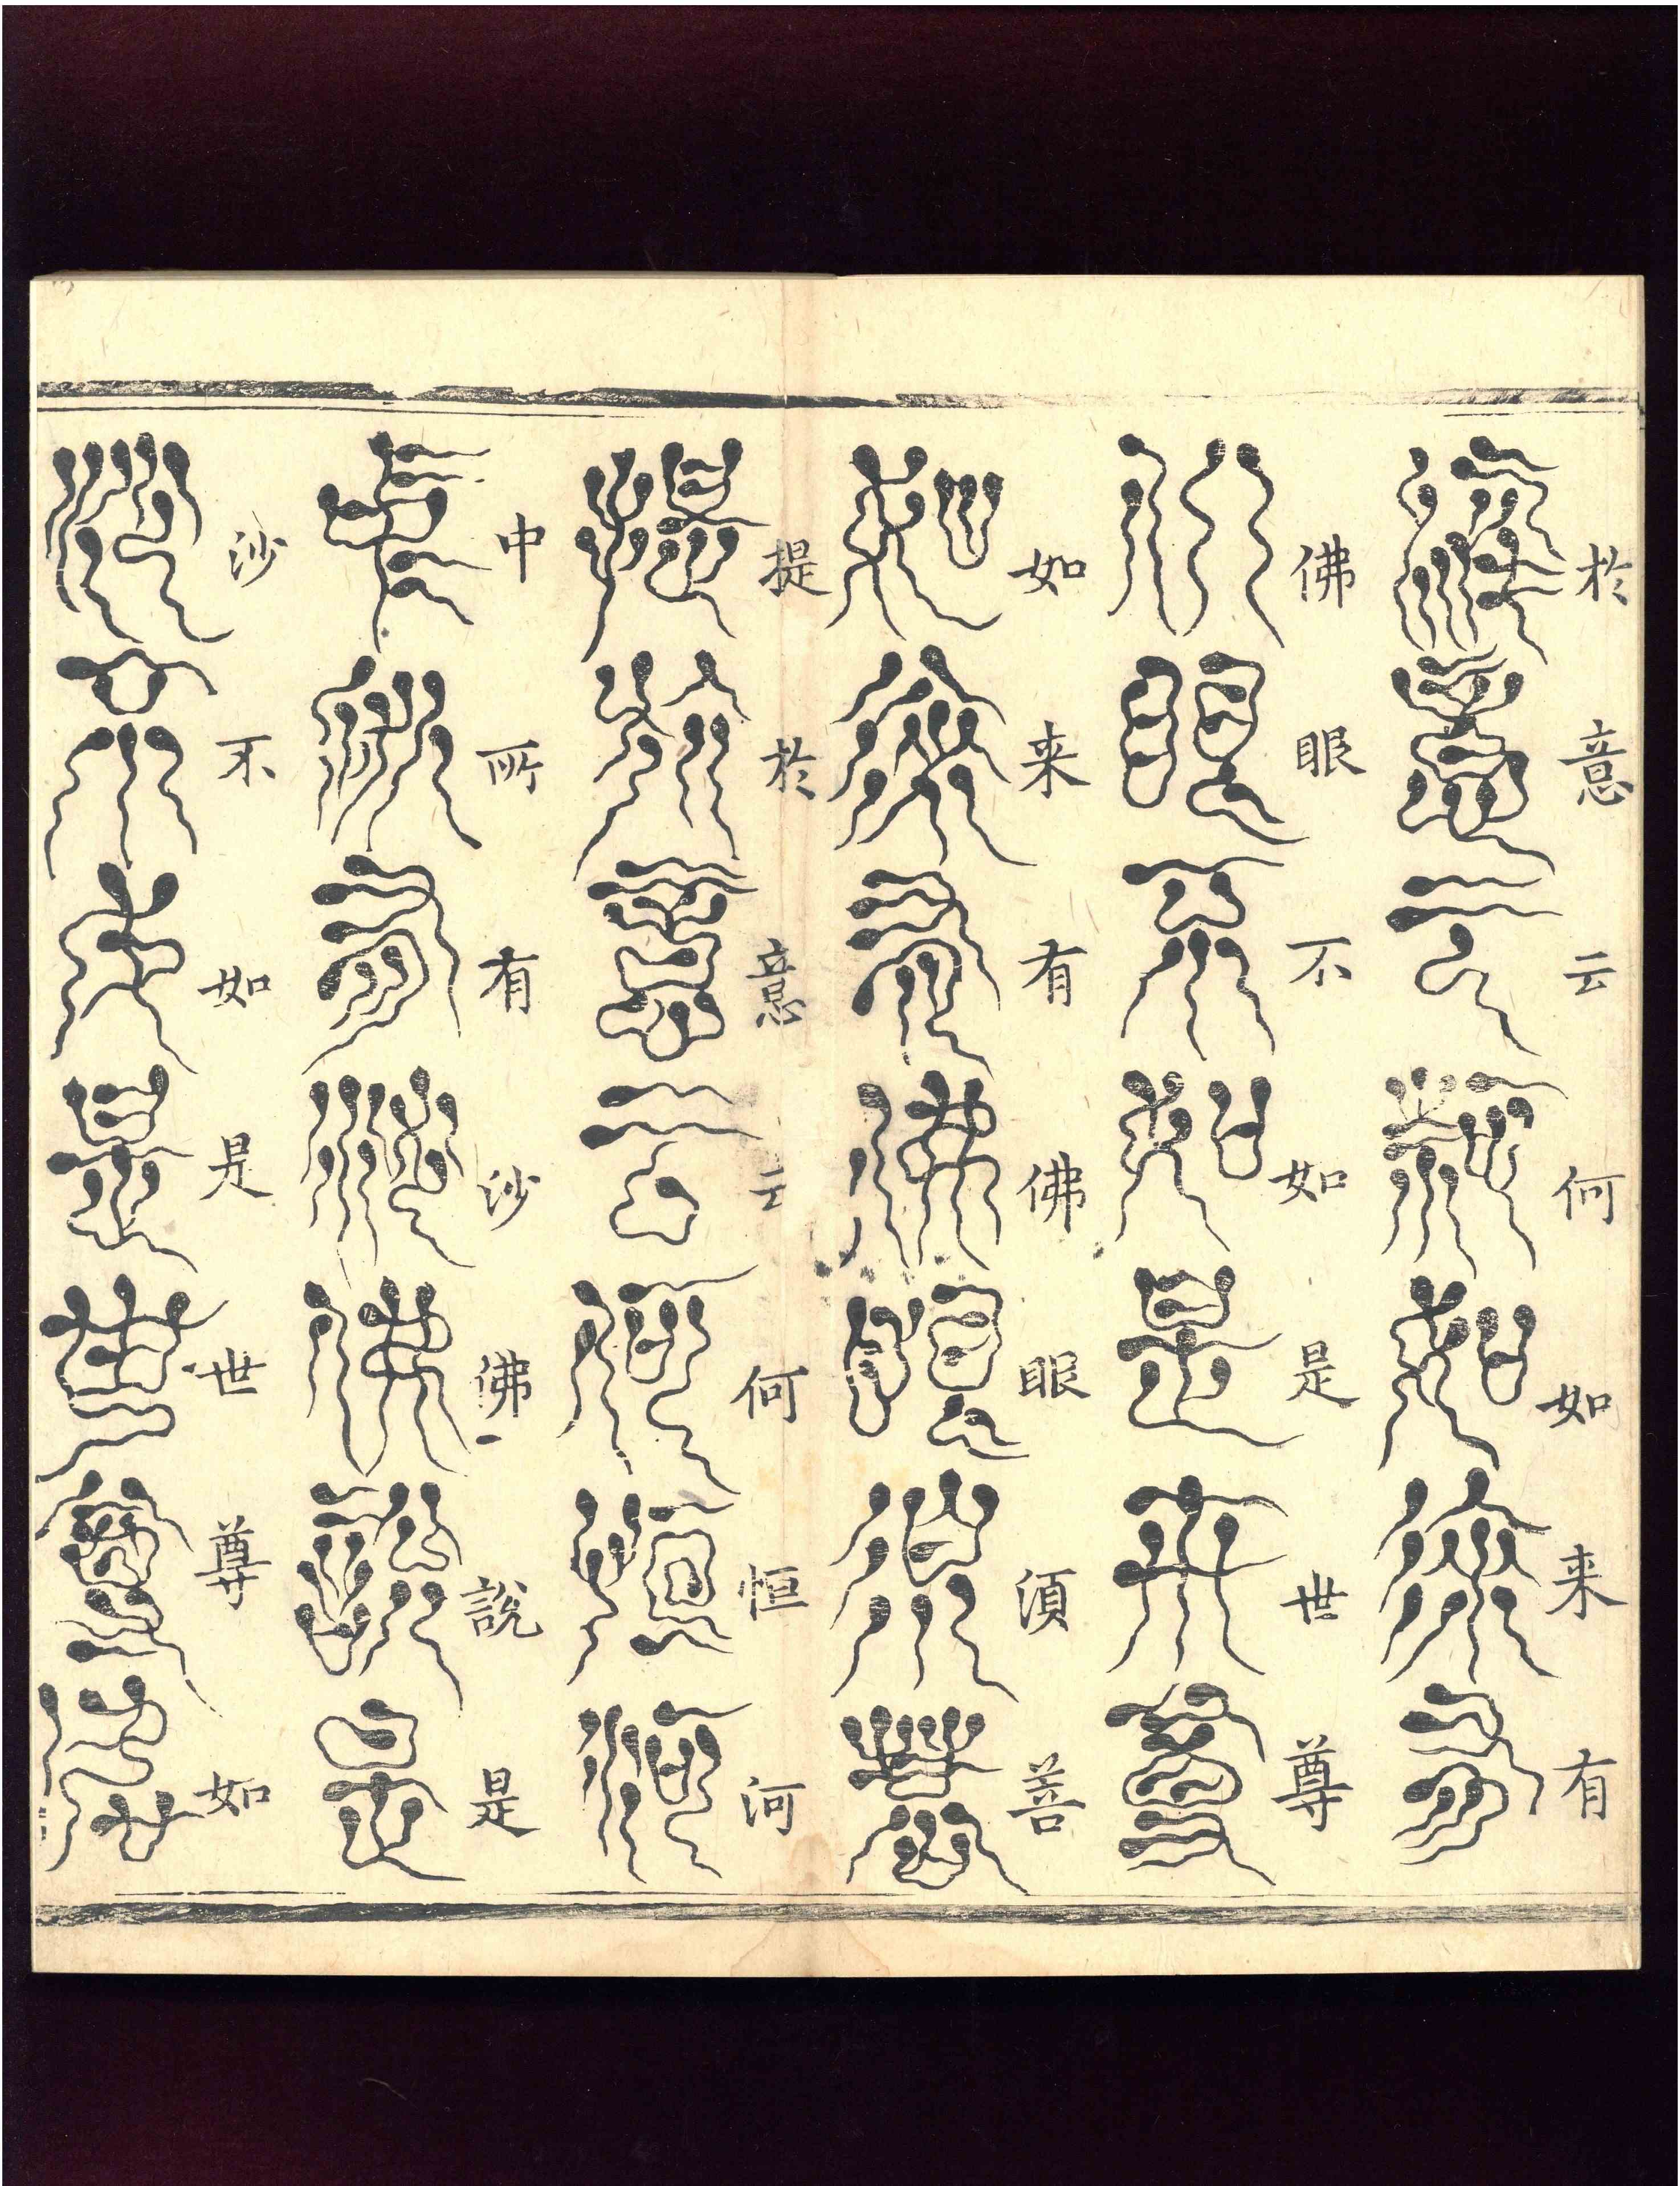 於意云何如来有
佛眼不如是世尊
如来有佛眼須菩
提於意云何恒河
中所有沙佛說是
沙不如是世尊如